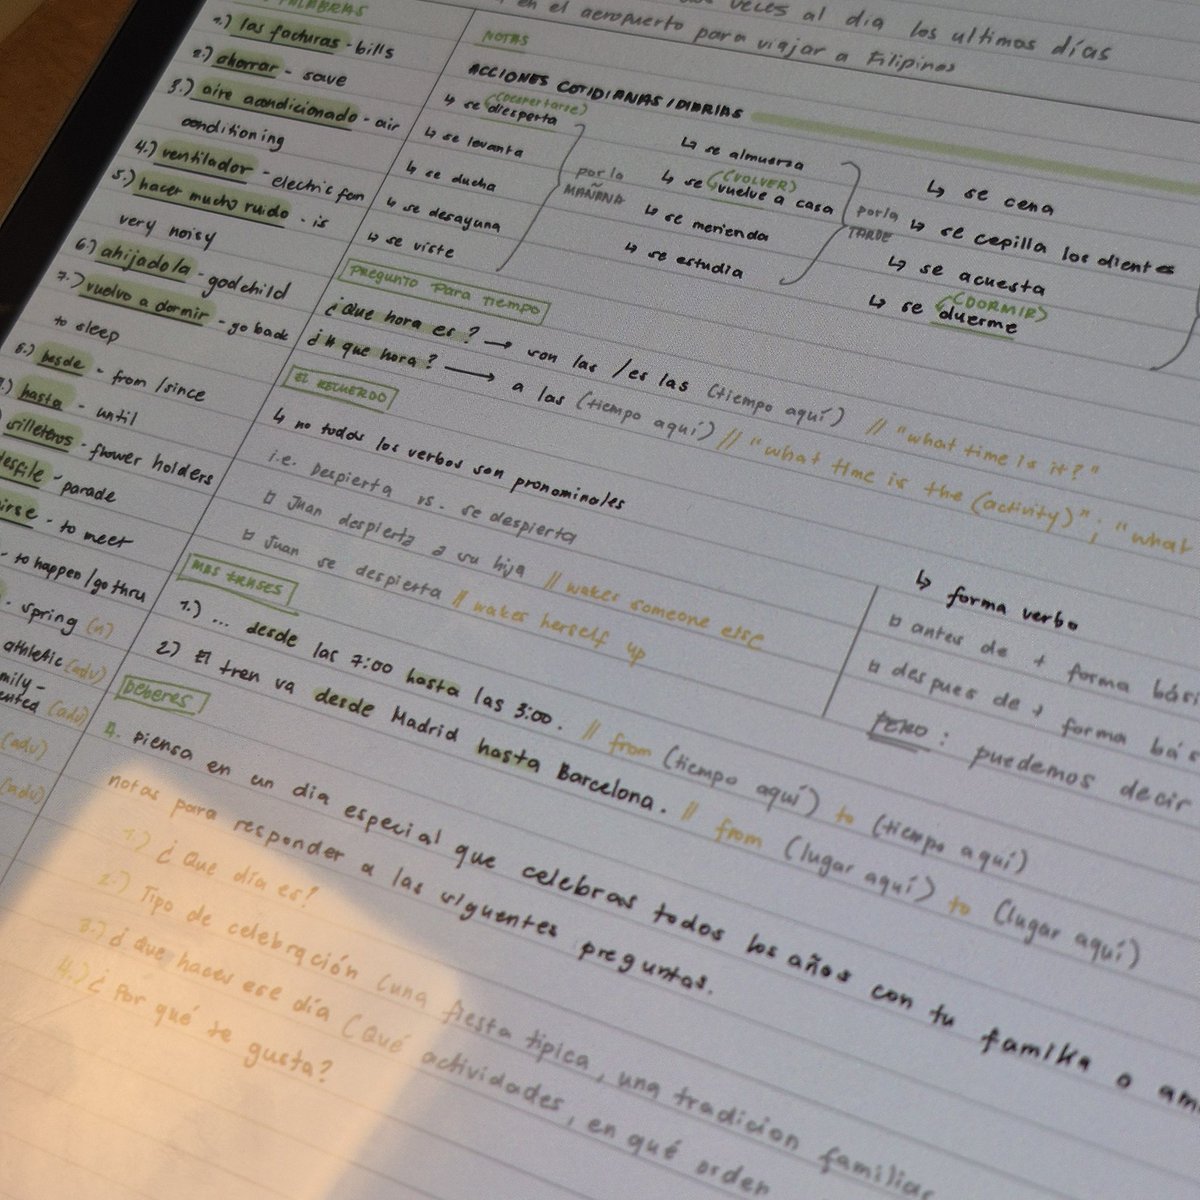 PALABRAS
1.) las facturas - bills
2.) ahorrar - save
3.) aire acondicionado - air
conditioning
4.) ventilador - electric fan
5.) hacer mucho ruido - is
very noisy
6.) ahijado/a - godchild
7.) vuelvo a dormir - go back
to sleep
8.) desde - from / since
hasta - until
silleteros - flower holders
desfile - parade
irse - to meet
- to happen / go thru
- spring (n)
athletic (adv)
mily-
ented (adv)
(adv)
(adv)
veces al día los ultimos días
en el aeropuerto para viajar a Filipinas
NOTAS
ACCIONES COTIDIANAS / DIARIAS
↳ se despierta (despertarse)
↳ se levanta
↳ se ducha
↳ se desayuna
↳ se viste
por la
MAÑANA
↳ se almuerza
↳ se vuelve a casa (VOLVER)
↳ se merienda
↳ se estudia
por la
TARDE
↳ se
cena
↳ se cepilla los dientes
↳ se acuesta
↳ se duerme (DORMIR)
Pregunta para tiempo
¿Que hora es? → son las / es las (tiempo aquí) // "what time is it?"
¿A que hora? → a las (tiempo aquí) // "what time is the (activity)"; "what
EL RECUERDO
↳ no todos los verbos son pronominales
i.e. Despierta vs. se despierta
Juan despierta a su hija // wakes someone else
Juan se despierta // wakes herself up
↳ forma verbo
antes de + forma bási
despues de + forma bás
PERO: puedemos decir
MAS FRASES
1.) ... desde las 7:00 hasta las 3:00. // from (tiempo aquí) to (tiempo aquí)
2) El tren va desde Madrid hasta Barcelona. // from (lugar aquí) to (lugar aquí)
DEBERES
A. piensa en un dia especial que celebras todos los años con tu familia o am
notas para responder a las siguentes preguntas.
1.) ¿Que día es?
2.) Tipo de celebración (una fiesta tipica, una tradicion familiar
3.) ¿Que haces ese día (Qué actividades, en qué orden
4.) ¿Por qué te gusta?